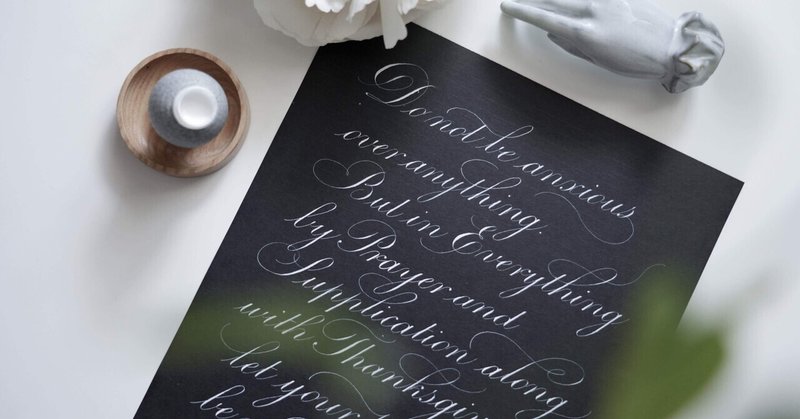 Do not be anxious
over anything.
But in Everything
by Prayer and
Supplication along
with Thanksgi
let your
be